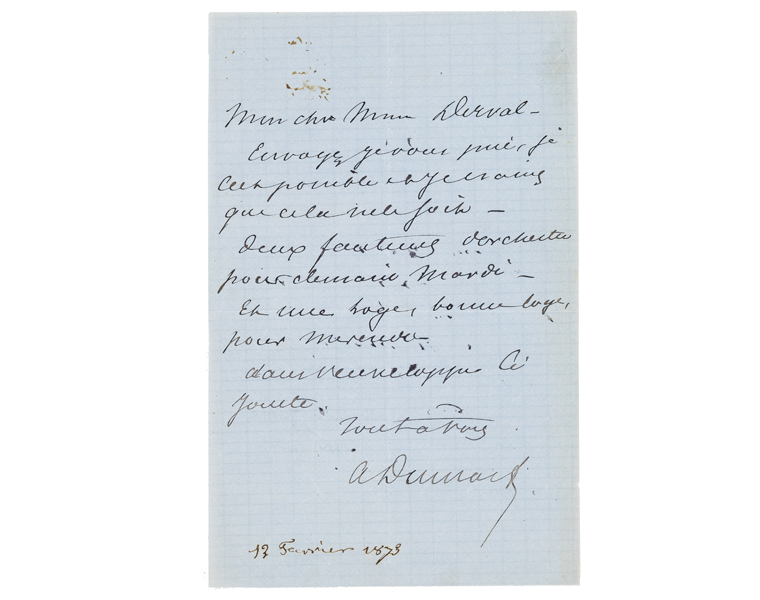 Mon cher Mme Derval —
Envoyez, je vous prie, si
c'est possible et je crains
que cela ne le soit —
deux fauteuils d'orchestre
pour demain Mardi —
Et une loge, bonne loge,
pour mercredi
dans l'enveloppe ci
jointe.
Tout à vous
A Dumas f
17 Fevrier 1873